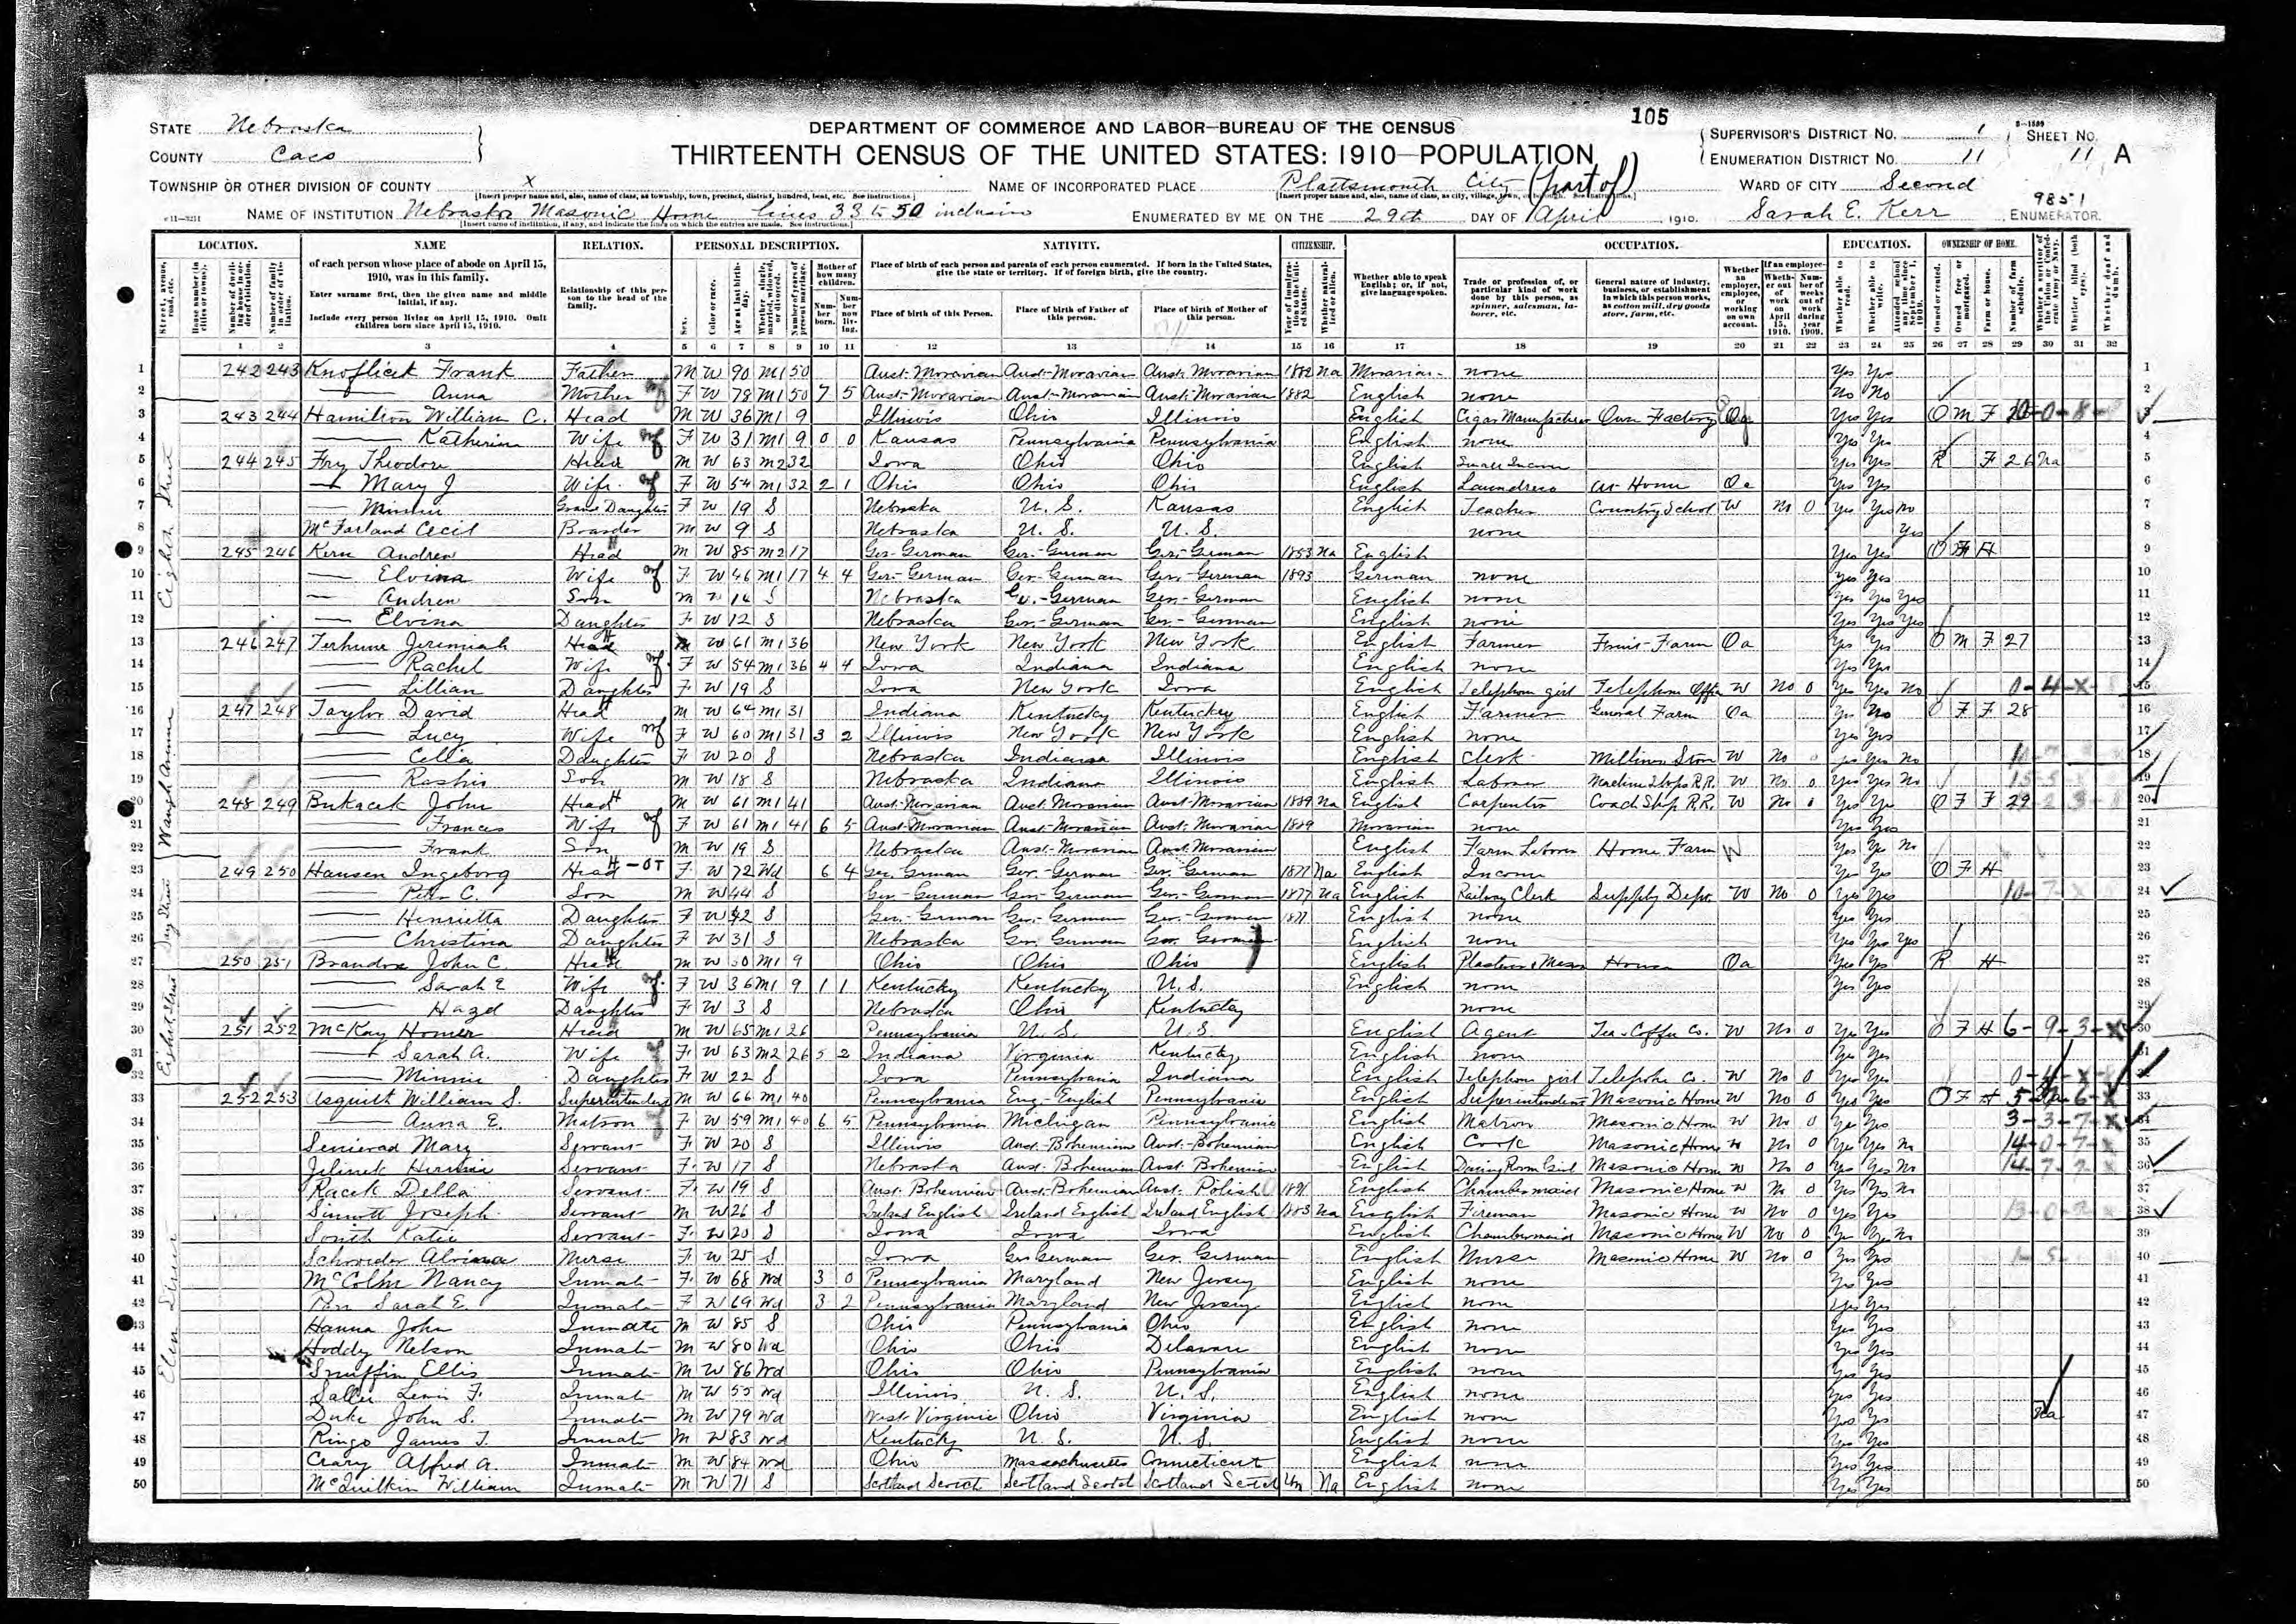 105
STATE Nebraska
COUNTY Cass
DEPARTMENT OF COMMERCE AND LABOR—BUREAU OF THE CENSUS
THIRTEENTH CENSUS OF THE UNITED STATES: 1910—POPULATION
SUPERVISOR'S DISTRICT NO. 1
ENUMERATION DISTRICT NO. 11
SHEET NO. 11 A
TOWNSHIP OR OTHER DIVISION OF COUNTY X
NAME OF INCORPORATED PLACE Plattsmouth City (part of)
WARD OF CITY Second
9851
NAME OF INSTITUTION Nebraska Masonic Home Lines 33 to 50 inclusive
ENUMERATED BY ME ON THE 29th DAY OF April, 1910. Sarah E. Kerr, ENUMERATOR.
LOCATION. NAME RELATION. PERSONAL DESCRIPTION. NATIVITY. CITIZENSHIP. OCCUPATION. EDUCATION. OWNERSHIP OF HOME.
of each person whose place of abode on April 15, 1910, was in this family.
Enter surname first, then the given name and middle initial, if any.
Include every person living on April 15, 1910. Omit children born since April 15, 1910.
Relationship of this person to the head of the family.
Place of birth of each person and parents of each person enumerated. If born in the United States, give the state or territory. If of foreign birth, give the country.
Place of birth of this Person. Place of birth of Father of this person. Place of birth of Mother of this person.
Whether able to speak English; or, if not, give language spoken.
1 2 3 4 5 6 7 8 9 10 11 12 13 14 15 16 17 18 19 20 21 22 23 24 25 26 27 28 29 30 31 32
1 242 243 Knoflicek Frank Father M W 90 M1 50 Aust-Moravian Aust-Moravian Aust-Moravian 1882 Na Moravian none Yes Yes
2 Anna Mother F W 78 M1 50 7 5 Aust-Moravian Aust-Moravian Aust-Moravian 1882 English none No No
3 243 244 Hamilton William C. Head M W 36 M1 9 Illinois Ohio Illinois English Cigar Manufacturer Own Factory Yes Yes O M F
4 Katherine Wife F W 31 M1 9 0 0 Kansas Pennsylvania Pennsylvania English none Yes Yes
5 244 245 Fry Theodore Head M W 63 M2 32 Iowa Ohio Ohio English Yes Yes R F 26
6 Mary J Wife F W 54 M1 32 2 1 Ohio Ohio Ohio English Laundress At Home Oa Yes Yes
7 Minnie Grand Daughter F W 19 S Nebraska U. S. Kansas English Teacher Country School W No 0 Yes Yes No
8 McFarland Cecil Boarder M W 9 S Nebraska U. S. U. S. none Yes
9 245 246 Kern Andrew Head M W 85 M2 17 Ger-German Ger-German Ger-German 1853 Na English Yes Yes O F H
10 Elvina Wife F W 46 M1 17 4 4 Ger-German Ger-German Ger-German 1893 German none Yes Yes
11 Andrew Son M W 14 S Nebraska Ger-German Ger-German English none Yes Yes Yes
12 Elvina Daughter F W 12 S Nebraska Ger-German Ger-German English none Yes Yes Yes
13 246 247 Terhune Jeremiah Head M W 61 M1 36 New York New York New York English Farmer Farm Oa Yes Yes O M F 27
14 Rachel Wife F W 54 M1 36 4 4 Iowa Indiana Indiana English none Yes Yes
15 Lillian Daughter F W 19 S Iowa New York Iowa English Telephone girl Telephone Office W No 0 Yes Yes No
16 247 248 Taylor David Head M W 64 M1 31 Indiana Kentucky Kentucky English Farmer General Farm Oa Yes No O F F 28
17 Lucy Wife F W 60 M1 31 3 2 Illinois New York New York English none Yes Yes
18 Celia Daughter F W 20 S Nebraska Indiana Illinois English Clerk Millinery Store W No 0 Yes Yes No
19 Son M W 18 S Nebraska Indiana Illinois English Laborer Machine Shops R.R. W No 0 Yes Yes No
20 248 249 Bukacek John Head M W 61 M1 41 Aust-Moravian Aust-Moravian Aust-Moravian 1889 Na English Carpenter Coach Shop R.R. W No 0 Yes Yes O F F 29
21 Frances Wife F W 61 M1 41 6 5 Aust-Moravian Aust-Moravian Aust-Moravian 1889 Moravian none Yes Yes
22 Frank Son M W 19 S Nebraska Aust-Moravian Aust-Moravian English Farm Laborer Home Farm W Yes Yes No
23 249 250 Hansen Ingeborg Head F W 72 Wd 6 4 Ger-German Ger-German Ger-German 1877 Na English Income Yes Yes O F H
24 Peter C. Son M W 44 S Ger-German Ger-German Ger-German 1877 Na English Railway Clerk Supply Dept. W No 0 Yes Yes
25 Henrietta Daughter F W 42 S Ger-German Ger-German Ger-German 1877 English none Yes Yes
26 Christina Daughter F W 31 S Nebraska Ger. German Ger. German English none Yes Yes Yes
27 250 251 John C. Head M W 30 M1 9 Ohio Ohio Ohio English House Oa Yes Yes R H
28 Sarah E Wife F W 36 M1 9 1 1 Kentucky Kentucky U.S. English none Yes Yes
29 Hazel Daughter F W 3 S Nebraska Ohio Kentucky none
30 251 252 McKay Homer Head M W 65 M1 26 Pennsylvania U.S. U.S. English Agent Tea-Coffee Co. W No 0 Yes Yes O F H
31 Sarah A. Wife F W 63 M2 26 5 2 Indiana Virginia Kentucky English none Yes Yes
32 Minnie Daughter F W 22 S Iowa Pennsylvania Indiana English Telephone girl Telephone Co. W No 0 Yes Yes
33 252 253 Asquith William S. Superintendent M W 66 M1 40 Pennsylvania Eng-English Pennsylvania English Superintendent Masonic Home W No 0 Yes Yes O F H
34 Anna E. Matron F W 59 M1 40 6 5 Pennsylvania Michigan Pennsylvania English Matron Masonic Home W No 0 Yes Yes
35 Mary Servant F W 20 S Illinois Aust-Bohemian Aust-Bohemian English Cook Masonic Home W No 0 Yes Yes No
36 Jelinek Servant F W 17 S Nebraska Aust-Bohemian Aust-Bohemian English Dining Room Girl Masonic Home W No 0 Yes Yes No
37 Racek Della Servant F W 19 S Aust-Bohemian Aust-Bohemian Aust-Polish 1891 English Chambermaid Masonic Home W No 0 Yes Yes No
38 Sinnott Joseph Servant M W 26 S Ireland English Ireland English Ireland English 1883 Na English Fireman Masonic Home W No 0 Yes Yes
39 Smith Katie Servant F W 20 S Iowa Iowa Iowa English Chambermaid Masonic Home W No 0 Yes Yes No
40 Schroeder Alvina Nurse F W 25 S Iowa Ger German Ger. German English Nurse Masonic Home W No 0 Yes Yes
41 McColm Nancy Inmate F W 68 Wd 3 0 Pennsylvania Maryland New Jersey English none Yes Yes
42 Sarah E. Inmate F W 69 Wd 3 2 Pennsylvania Maryland New Jersey English none Yes Yes
43 Hanna John Inmate M W 85 S Ohio Pennsylvania Ohio English none Yes Yes
44 Hoddy Nelson Inmate M W 80 Wd Ohio Ohio Delaware English none Yes Yes
45 Ellis Inmate M W 86 Wd Ohio Ohio Pennsylvania English none Yes Yes
46 Sallee Lewis F. Inmate M W 55 Wd Illinois U.S. U.S. English none Yes Yes
47 Duke John S. Inmate M W 79 Wd West Virginia Ohio Virginia English none Yes Yes
48 Ringo James T. Inmate M W 83 Wd Kentucky U.S. U.S. English none Yes Yes
49 Crary Alfred A. Inmate M W 84 Wd Ohio Massachusetts Connecticut English none Yes Yes
50 McQuilkin William Inmate M W 71 S Scotland Scotch Scotland Scotch Scotland Scotch Un Na English none Yes Yes